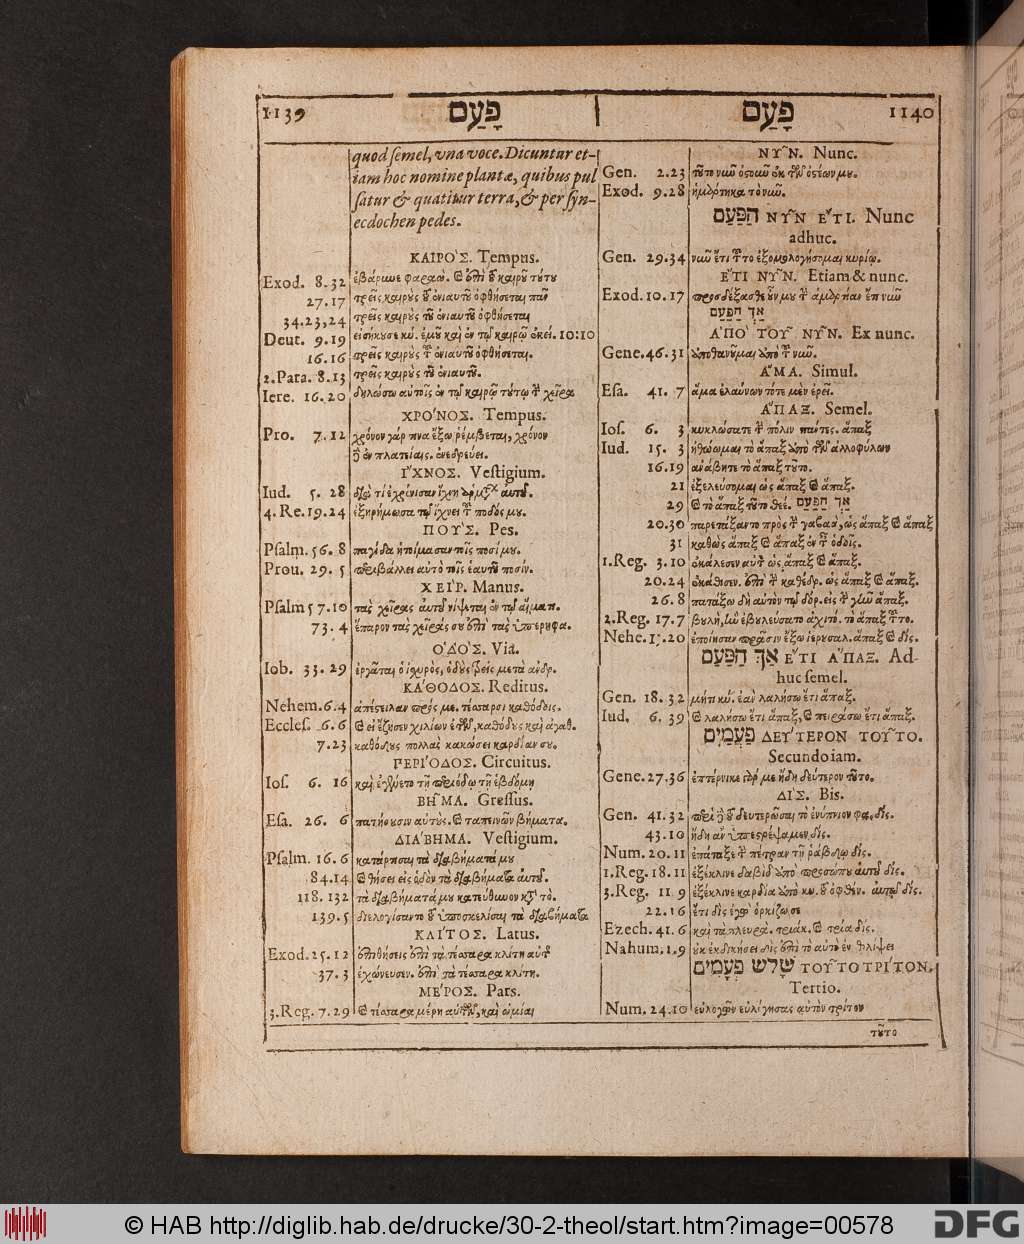 1139
פָּעַם
פָּעַם
1140
quod semel, vna voce. Dicuntur et-
iam hoc nomine plantæ, quibus pul
satur & quatitur terra, & per syn-
ecdochen pedes.
ΚΑΙΡΟ'Σ. Tempus.
Exod. 8.32
27.17 τρεῖς καιροὺς τοῦ ἐνιαυτοῦ ὀφθήσεται πᾶν
34.23,24 τρεῖς καιροὺς τοῦ ἐνιαυτοῦ ὀφθήσεται
Deut. 9.19 εἰσήκουσε κύ. ἐμοῦ καὶ ἐν τῷ καιρῷ ἐκεί. 10:10
16.16 τρεῖς καιροὺς τοῦ ἐνιαυτοῦ ὀφθήσεται.
2.Para. 8.13 τρεῖς καιροὺς τοῦ ἐνιαυτοῦ.
Iere. 16.20 δηλώσω αὐτοῖς ἐν τῷ καιρῷ τούτῳ τὴν χεῖρα
ΧΡΟ'ΝΟΣ. Tempus.
Pro. 7.12 χρόνον γάρ τινα ἔξω ῥέμβεται, χρόνον
δὲ ἐν πλατείαις. ἐνεδρεύει.
ΙΎΧΝΟΣ. Vestigium.
Iud. 5.28
4.Re.19.24 ἐξηρήμωσα τῷ ἴχνει τοῦ ποδός μου.
ΠΟΥ'Σ. Pes.
Psalm. 56.8 παγίδα ἡτοίμασαν τοῖς ποσί μου.
Prou. 29.5 περιβάλλει αὐτὸ τοῖς ἑαυτοῦ ποσίν.
ΧΕΙ῀Ρ. Manus.
Psalm 57.10 τὰς χεῖρας αὐτοῦ νίψεται ἐν τῷ αἵματι.
73.4 ἔπαρον τὰς χεῖράς σου ἐπὶ τὰς ὑπερηφα.
Ο'ΔΟ'Σ. Via.
Iob. 33.29 ἐργᾶται ὁ ἰσχυρός, ὁδοὺς τρεῖς μετὰ ἀνδρ.
ΚΑ'ΘΟΔΟΣ. Reditus.
Nehem. 6.4 ἀπέστειλαν πρός με. τέσσαρσι καθόδοις.
Eccles. 6.6 καὶ εἰ ἔζησεν χιλίων ἐτῶν, καθόδους καὶ ἀγαθ.
7.23 καθόδους πολλὰς κακώσει καρδίαν σου.
ΠΕΡΙ'ΟΔΟΣ. Circuitus.
Ios. 6.16 καὶ ἐγένετο τῇ περιόδῳ τῇ ἑβδόμῃ
ΒΗ῀ΜΑ. Gressus.
Esa. 26.6 πατήσουσιν αὐτοὺς. καὶ ταπεινῶν βήματα.
ΔΙΑ'ΒΗΜΑ. Vestigium.
Psalm. 16.6 κατάρτισαι τὰ διαβήματά μου
84.14 καὶ θήσει εἰς ὁδὸν τὰ διαβήματα αὐτοῦ.
118.132 τὰ διαβήματά μου κατεύθυνον κατὰ τὸ.
139.5 διελογίσαντο τοῦ ὑποσκελίσαι τὰ διαβήματα
ΚΛΙ'ΤΟΣ. Latus.
Exod. 25.12 ἐπιθήσεις ἐπὶ τὰ τέσσαρα κλίτη αὐτῆς
37.3 ἐχώνευσεν. ἐπὶ τὰ τέσσαρα κλίτη.
ΜΕ'ΡΟΣ. Pars.
3.Reg. 7.29 καὶ τέσσαρα μέρη αὐτῶν, καὶ ὠμίαι
ΝΥ῀Ν. Nunc.
Gen. 2.23 τοῦτο νῦν ὀστοῦν ἐκ τῶν ὀστέων μου.
Exod. 9.28 ἡμάρτηκα τὸ νῦν.
הַפָּעַם ΝΥ῀Ν ΕΎΤΙ. Nunc
adhuc.
Gen. 29.34 νῦν ἔτι τοῦτο ἐξομολογήσομαι κυρίῳ.
ΕΎΤΙ ΝΥ῀Ν. Etiam & nunc.
Exod. 10.17 προσδέξασθε οὖν μου τὴν ἁμαρτίαν ἔτι νῦν
אַךְ הַפַּעַם
Α'ΠΟ` ΤΟΥ῀ ΝΥ῀Ν. Ex nunc.
Gene. 46.31 ἀποθανοῦμαι ἀπὸ τοῦ νῦν.
ΑΎΜΑ. Simul.
Esa. 41.7 ἅμα ἐλαύνων τότε μὲν ἐρεῖ.
ΑΎΠΑΞ. Semel.
Ios. 6.3 κυκλώσατε τὴν πόλιν πάντες. ἅπαξ
Iud. 15.3 ἠθώωμαι τὸ ἅπαξ ἀπὸ τῶν ἀλλοφύλων
16.19 ἀνάβητε τὸ ἅπαξ τοῦτο.
21 ἐξελεύσομαι ὡς ἅπαξ καὶ ἅπαξ.
29 καὶ τὸ ἅπαξ τοῦτο θεέ. אַךְ הַפַּעַם
20.30 παρετάξαντο πρὸς τὴν γαβαὰ, ὡς ἅπαξ καὶ ἅπαξ
31 καθὼς ἅπαξ καὶ ἅπαξ ἐν ταῖς ὁδοῖς.
1.Reg. 3.10 ἐκάλεσεν αὐτὸν ὡς ἅπαξ καὶ ἅπαξ.
20.24 ἐκάθισεν. ἐπὶ τὴν καθέδρ. ὡς ἅπαξ καὶ ἅπαξ.
26.8 πατάξω δὴ αὐτὸν τῷ δόρ. εἰς τὴν γῆν ἅπαξ.
2.Reg. 17.7 βουλὴ, ἣν ἐβουλεύσατο ἀχιτό. τὸ ἅπαξ τοῦτο.
Nehe. 13.20 ἐποίησαν πρᾶσιν ἔξω ἱερουσαλ. ἅπαξ καὶ δίς.
אַךְ הַפַּעַם ΕΎΤΙ ΑΎΠΑΞ. Ad-
huc semel.
Gen. 18.32 μήτι κύ. ἐὰν λαλήσω ἔτι ἅπαξ.
Iud. 6.39 καὶ λαλήσω ἔτι ἅπαξ, καὶ πειράσω ἔτι ἅπαξ.
פַּעֲמַיִם ΔΕΥ'ΤΕΡΟΝ ΤΟΥ῀ΤΟ.
Secundo iam.
Gene. 27.36 ἐπτέρνικε γάρ με ἤδη δεύτερον τοῦτο.
ΔΙ'Σ. Bis.
Gen. 41.32 περὶ δὲ τοῦ δευτερῶσαι τὸ ἐνύπνιον φα. δίς.
43.10 ἤδη ἂν ὑπεστρέψαμεν δίς.
Num. 20.11 ἐπάταξε τὴν πέτραν τῇ ῥάβδῳ δίς.
1.Reg. 18.11 ἐξέκλινε δαβὶδ ἀπὸ προσώπου αὐτοῦ δίς.
3.Reg. 11.9 ἐξέκλινε καρδία ἀπὸ κυ. τοῦ ὀφθέν. αὐτῷ δίς.
22.16 ἔτι δὶς ἐγὼ ὁρκίζω σε
Ezech. 41.6 καὶ τὰ πλευρὰ. τριάκ. καὶ τρία δίς.
Nahum. 1.9 οὐκ ἐκδικήσει δὶς ἐπὶ τὸ αὐτὸ ἐν θλίψει
שָׁלֹשׁ פְּעָמִים ΤΟΥ῀ΤΟ ΤΡΙ'ΤΟΝ.
Tertio.
Num. 24.10 εὐλογῶν εὐλόγησας αὐτὸν τρίτον
τοῦτο
© HAB http://diglib.hab.de/drucke/30-2-theol/start.htm?image=00578
DFG